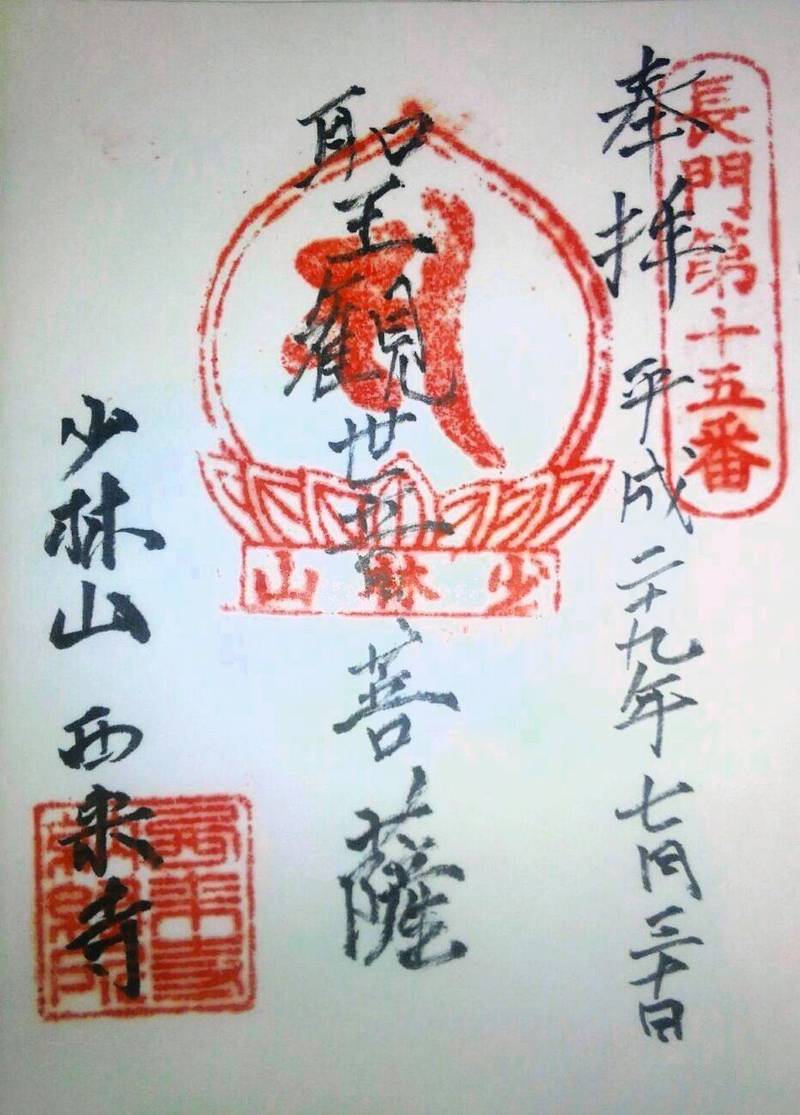 長門第十五番
奉拝 平成二十九年七月三十日
聖觀世音菩薩
少林山
少林山 西来寺